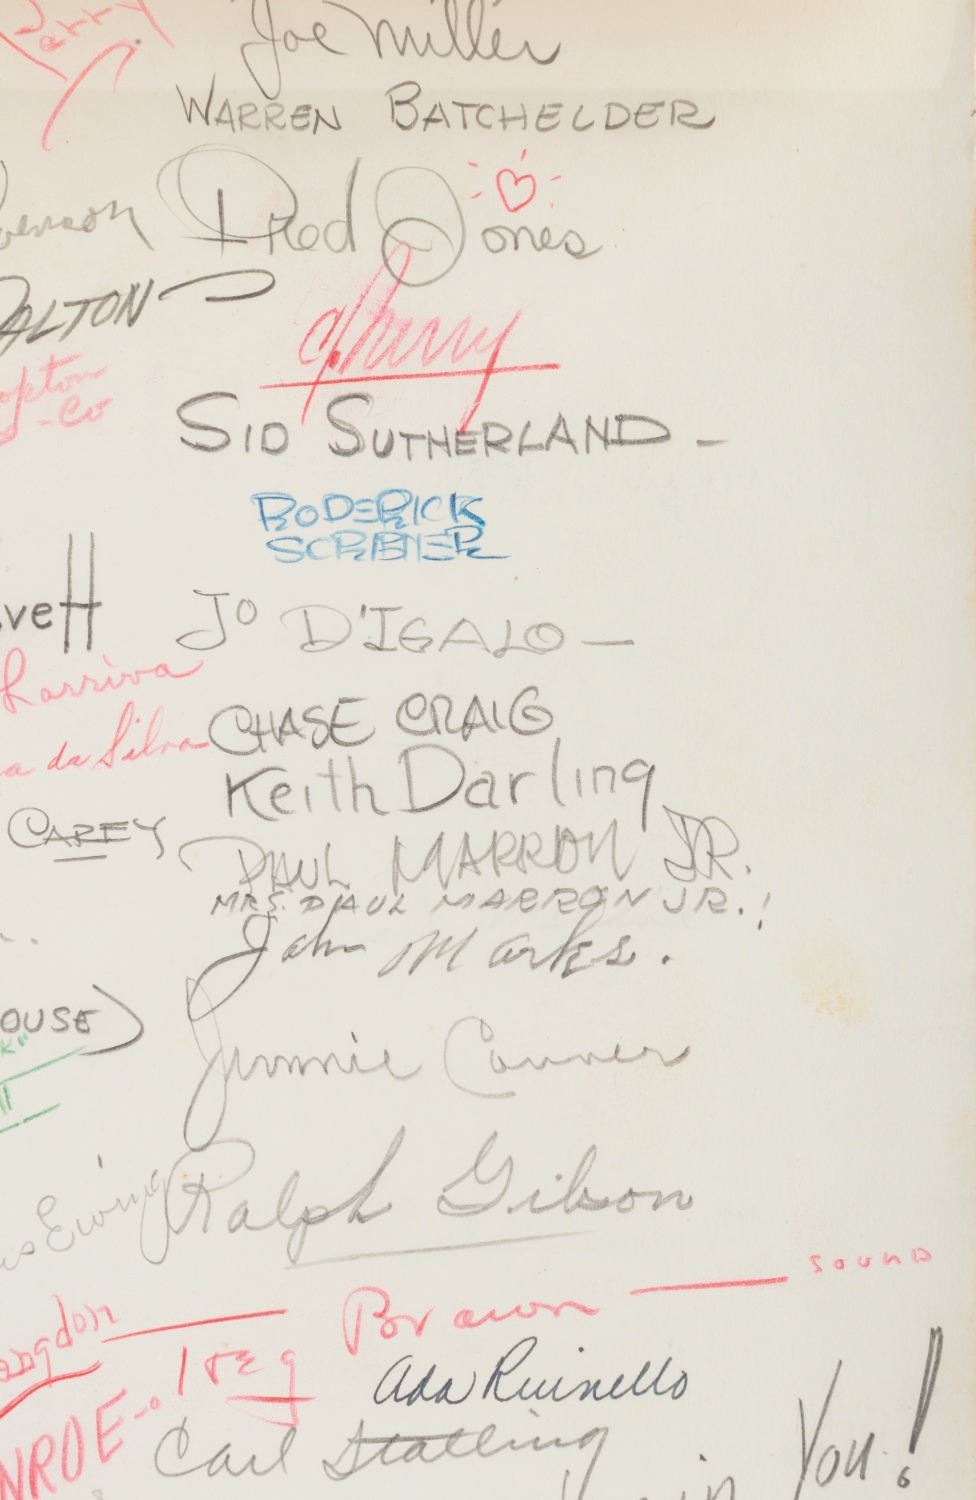 Perry
Joe Miller
WARREN BATCHELDER
Fred Jones
ALTON
SID SUTHERLAND -
RODERICK
SCRIBNER
JO D'IGALO —
Larriva
CHASE CRAIG
da Silva
Keith Darling
CAREY
PAUL MARRON JR.
MRS. PAUL MARRON JR.!
John Marks.
OUSE)
Jimmie Conner
Ewing
Ralph Gibson
Brown — SOUND
angdon — Treg
Ada Ruinello
NROE
Carl Stalling
You!